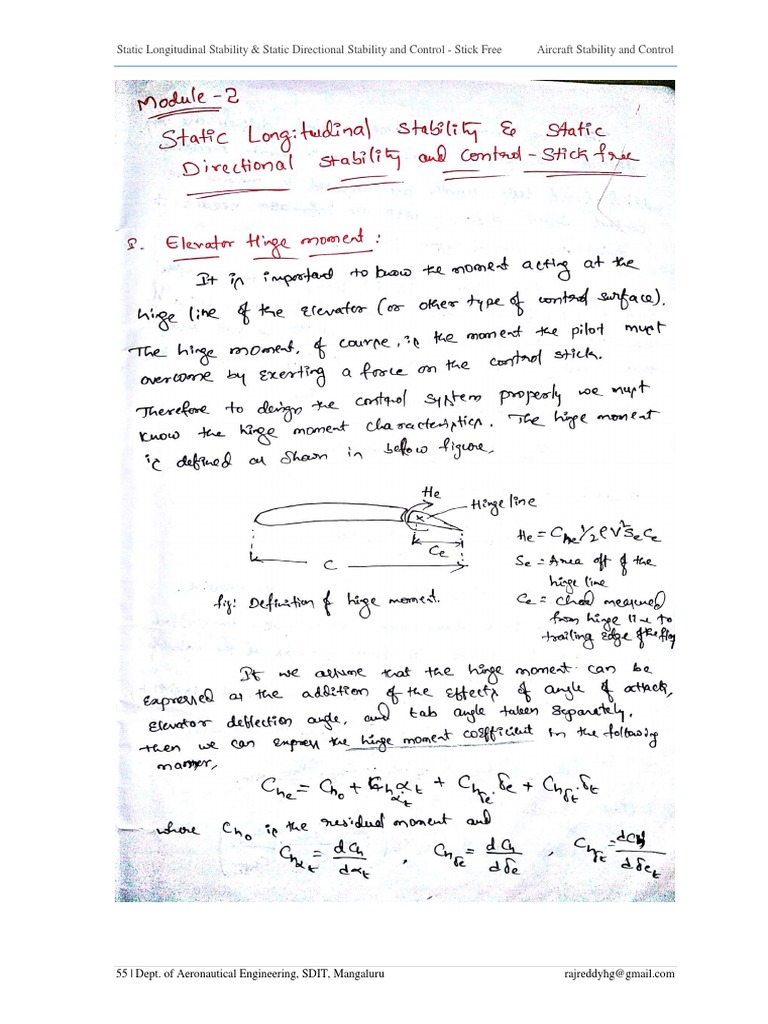 Static Longitudinal Stability & Static Directional Stability and Control - Stick Free Aircraft Stability and Control
Module-2
Static Longitudinal Stability & Static
Directional Stability and Control - Stick free
I. Elevator Hinge moment :
It is important to know the moment acting at the
hinge line of the elevator (or other type of control surface).
The hinge moment, of course, is the moment the pilot must
overcome by exerting a force on the control stick.
Therefore to design the control system properly we must
know the hinge moment characteristics. The hinge moment
is defined as shown in below figure,
He
Hinge line
Ce
C
He = Che 1/2 ρV²SeCe
Se = Area aft of the
hinge line
Ce = chord measured
from hinge line to
trailing edge of the flap
fig: Definition of hinge moment.
If we assume that the hinge moment can be
expressed as the addition of the effects of angle of attack,
elevator deflection angle, and tab angle taken separately,
then we can express the hinge moment coefficient in the following
manner,
Che = Ch₀ + Chαt αt + Chδe · δe + Chδt · δt
where Ch₀ is the residual moment and
Chαt = dCh/dαt , Chδe = dCh/dδe , Chδt = dCh/dδet
55 | Dept. of Aeronautical Engineering, SDIT, Mangaluru rajreddyhg@gmail.com